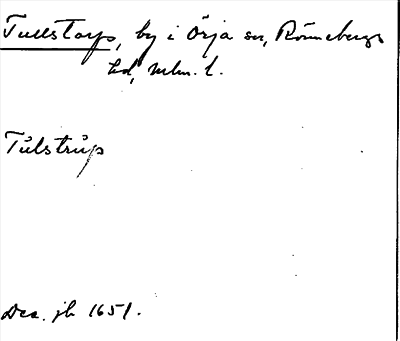 Tullstorp, by i Örja sn, Rönnebergs
hd, Mlm. l.
Tůlstrůp
Dec. jb 1651.